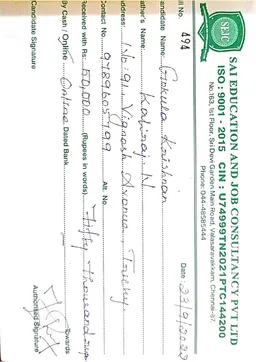 SEJC
SAI EDUCATION AND JOB CONSULTANCY PVT LTD
ISO : 9001 - 2015 CIN : U74999TN2021PTC144200
No.163, 1st Floor, Sri Devi Garden Main Road, Valasaravakkam, Chennai-87.
Phone: 044-48585444
Bill No. 494
Date 23/9/2022
andidate Name: Gokula Krishnan
ather's Name: Kabiraj. N
ddress: No: 91, Vignesh Avenue, Trichy
ontact No. 9789605199 Alt. No.
eceived with Rs: 50,000 (Rupees in words) Fifty Thousand
By Cash / Online Online Dated Bank Towards
Candidate Signature
Authorised Signature